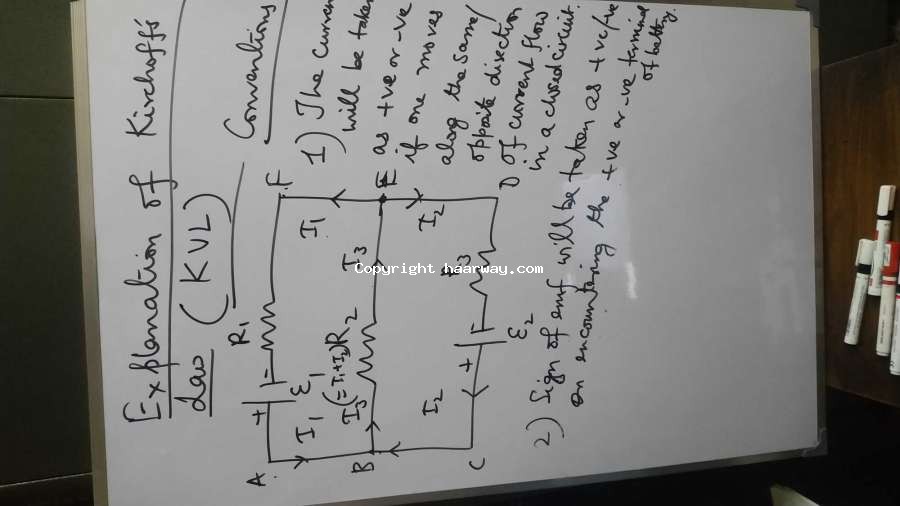 Explanation of Kirchoff's
Law (KVL)
Conventions
1) The current
will be taken
as +ve or -ve
if one moves
along the same/
opposite direction
of current flow
in a closed circuit.
2) Sign of emf will be taken as +ve/-ve
on encountering the +ve or -ve terminal
of battery.
A
+
-
F
R1
ε1
I1
I1
B
I3(=I1+I2)
R2
I3
E
I2
I2
C
+
-
ε2
R3
D
Copyright haarway.com